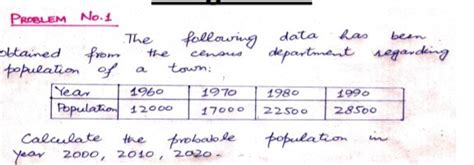 PROBLEM No.1
The following data has been
obtained from the census department regarding
population of a town:
Year 1960 1970 1980 1990
Population 12000 17000 22500 28500
Calculate the probable population in
year 2000, 2010, 2020.